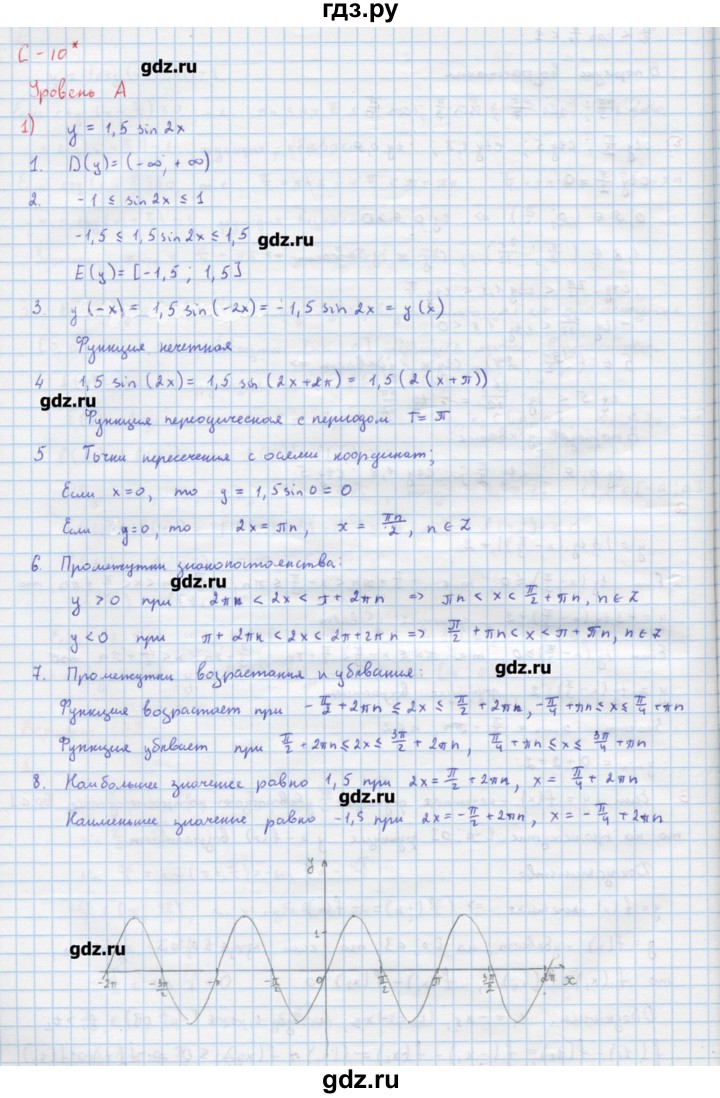 гдз.ру
С-10*
gdz.ru
Уровень А
1) y = 1,5 sin 2x
1. D(y) = (-∞; +∞)
2. -1 ≤ sin 2x ≤ 1
-1,5 ≤ 1,5 sin 2x ≤ 1,5
gdz.ru
E(y) = [-1,5 ; 1,5]
3. y(-x) = 1,5 sin(-2x) = -1,5 sin 2x = y(x)
Функция нечетная
4 1,5 sin (2x) = 1,5 sin (2x+2π) = 1,5 (2(x+π))
gdz.ru
Функция переодическая с периодом T = π
5 Точки пересечения с осями координат;
Если x=0, то y = 1,5 sin 0 = 0
Если y=0, то 2x = πn, x = πn/2, n ∈ Z
6. Промежутки знакопостоянства:
gdz.ru
y > 0 при 2πn < 2x < π + 2πn => πn < x < π/2 + πn, n ∈ Z
y < 0 при π + 2πn < 2x < 2π + 2πn => π/2 + πn < x < π + πn, n ∈ Z
gdz.ru
7. Промежутки возрастания и убывания:
Функция возрастает при -π/2 + 2πn ≤ 2x ≤ π/2 + 2πn, -π/4 + πn ≤ x ≤ π/4 + πn
Функция убывает при π/2 + 2πn ≤ 2x ≤ 3π/2 + 2πn, π/4 + πn ≤ x ≤ 3π/4 + πn
8. Наибольшее значение равно 1,5 при 2x = π/2 + 2πn, x = π/4 + 2πn
gdz.ru
Наименьшее значение равно -1,5 при 2x = -π/2 + 2πn, x = -π/4 + 2πn
y
1
gdz.ru
-2π -3π/2 -π -π/2 0 π/2 π 3π/2 2π x
gdz.ru